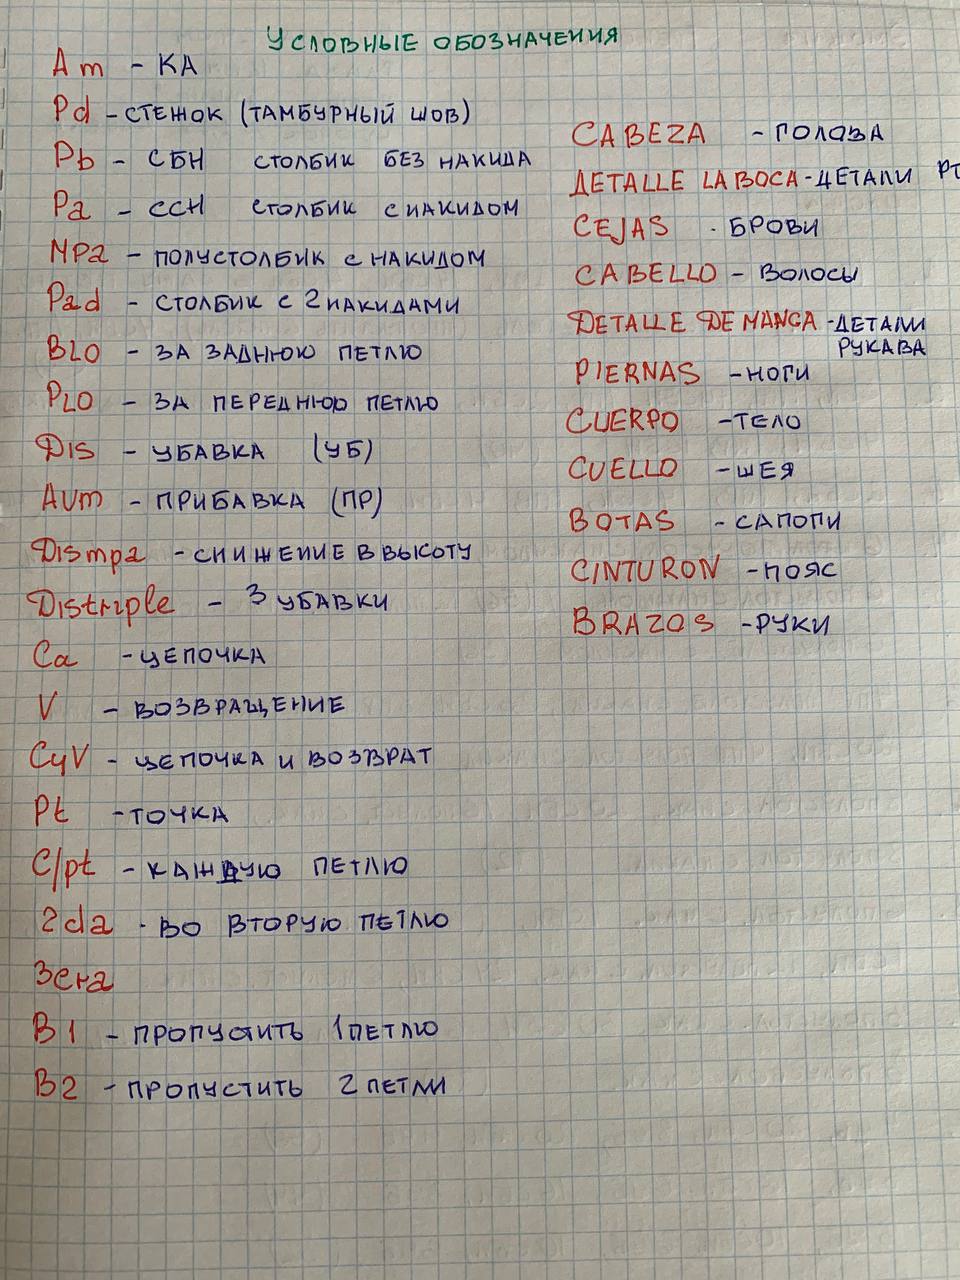 Условные обозначения
Am - КА
Pd - стежок (тамбурный шов)
Pb - СБН столбик без накида
Pa - ССН столбик с накидом
Mpa - полустолбик с накидом
Pad - столбик с 2 накидами
BLO - за заднюю петлю
PLO - за переднюю петлю
Dis - убавка (УБ)
Aum - прибавка (ПР)
Dismpa - снижение в высоту
Distriple - 3 убавки
Ca - цепочка
V - возвращение
CyV - цепочка и возврат
Pt - точка
C/pt - каждую петлю
2da - во вторую петлю
3era
B1 - пропустить 1 петлю
B2 - пропустить 2 петли
CABEZA - голова
DETALLE LA BOCA - детали рт
CEJAS - брови
CABELLO - волосы
DETALLE DE MANGA - детали
рукава
PIERNAS - ноги
CUERPO - тело
CUELLO - шея
BOTAS - сапоги
CINTURON - пояс
BRAZOS - руки